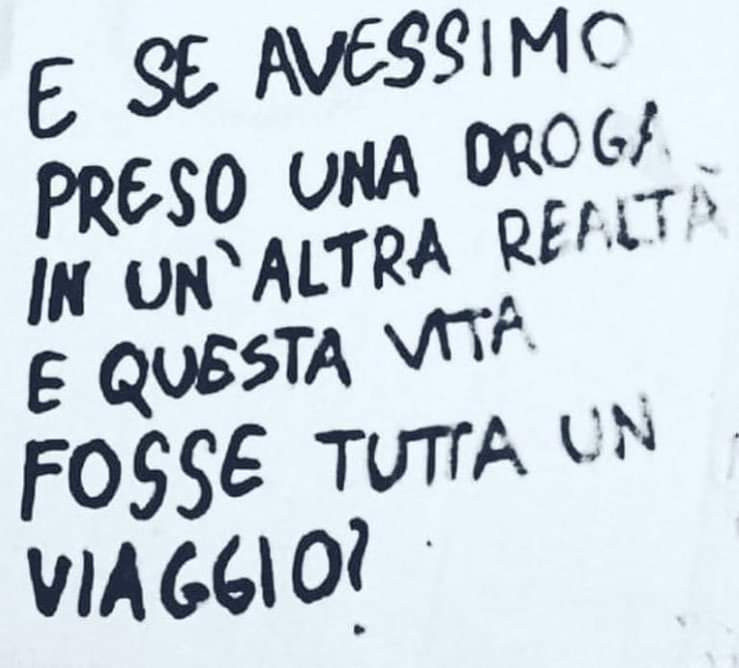 E SE AVESSIMO
PRESO UNA DROGA
IN UN'ALTRA REALTÀ
E QUESTA VITA
FOSSE TUTTA UN
VIAGGIO?